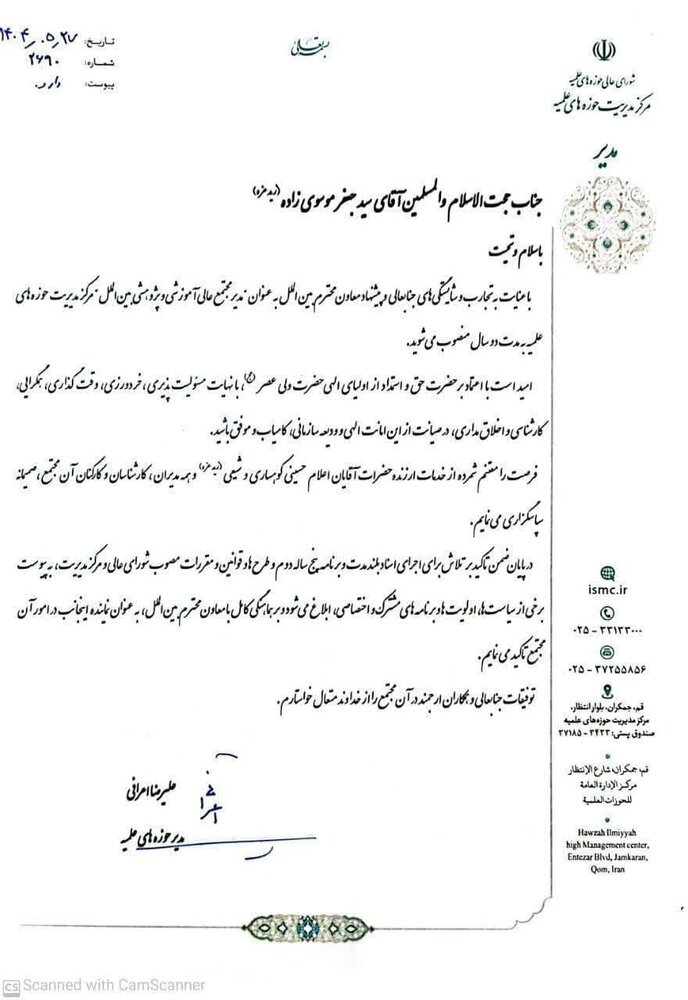 بسمه تعالی
تاریخ: ۱۴۰۴/۰۵/۲۷
شماره: ۲۶۹۰
پیوست: دارد
شورای عالی حوزه های علمیه
مرکز مدیریت حوزه های علمیه
مدیر
جناب حجت الاسلام والمسلمین آقای سید جعفر موسوی زاده (زید عزه)
باسلام و تحیت
با عنایت به تجارب و شایستگی های جنابعالی و پیشنهاد معاون محترم بین الملل به عنوان "مدیر مجتمع عالی آموزشی و پژوهشی بین الملل" مرکز مدیریت حوزه های
علمیه به مدت دو سال منصوب می شوید.
امید است با اعتماد بر حضرت حق و استمداد از اولیای الهی حضرت ولی عصر (عج)، با نهایت مسئولیت پذیری، خردورزی، وقت گذاری، همگرایی،
کارشناسی و اخلاق مداری، در صیانت از این امانت الهی و ودیعه سازمانی، کامیاب و موفق باشید.
فرصت را مغتنم شمرده از خدمات ارزنده حضرات آقایان اعلام حسینی کوهساری و شیعی (زید عزه) و همه مدیران، کارشناسان و کارکنان آن مجتمع، صمیمانه
سپاسگزاری می نمایم.
در پایان ضمن تاکید بر تلاش برای اجرای اسناد بلند مدت و برنامه پنج ساله دوم و طرح ها و قوانین و مقررات مصوب شورای عالی و مرکز مدیریت، به پیوست
برخی از سیاست ها، اولویت ها و برنامه های مشترک و اختصاصی، ابلاغ می شود و بر هماهنگی کامل با معاون محترم بین الملل، به عنوان نماینده اینجانب در امور آن
مجتمع تاکید می نمایم.
توفیقات جنابعالی و همکاران ارجمند در آن مجتمع را از خداوند متعال خواستارم.
علیرضا اعرافی
مدیر حوزه های علمیه
ismc.ir
۰۲۵ - ۳۳۱۳۳۰۰۰
۰۲۵ - ۳۷۲۵۵۸۵۶
قم، جمکران، بلوار انتظار،
مرکز مدیریت حوزه‌های علمیه
صندوق پستی: ۳۴۳۳ - ۳۷۱۸۵
قم، جمکران، شارع الإنتظار
مرکز الإدارة العامة
للحوزات العلمیة
Hawzah Ilmiyyah
high Management center,
Entezar Blvd, Jamkaran,
Qom, Iran
CS Scanned with CamScanner